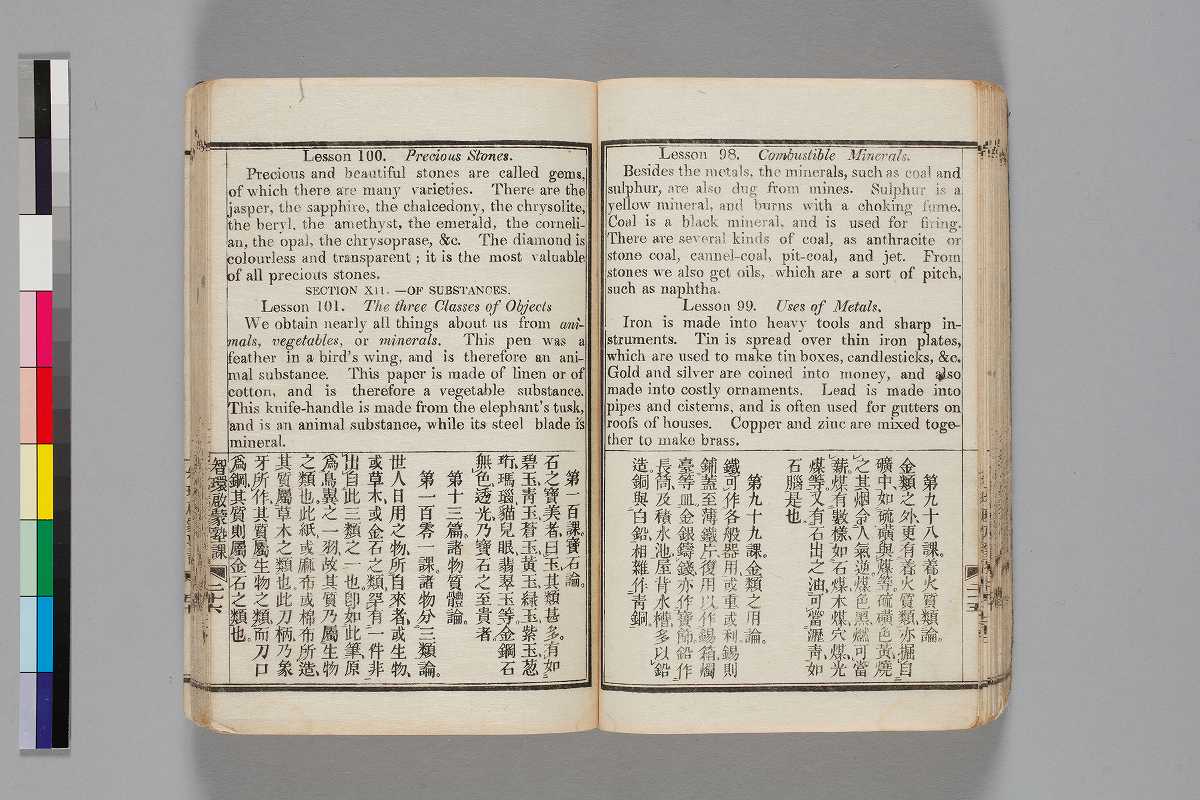 Lesson 98. Combustible Minerals.
Besides the metals, the minerals, such as coal and
sulphur, are also dug from mines. Sulphur is a
yellow mineral, and burns with a choking fume.
Coal is a black mineral, and is used for firing.
There are several kinds of coal, as anthracite or
stone coal, cannel-coal, pit-coal, and jet. From
stones we also get oils, which are a sort of pitch,
such as naphtha.
Lesson 99. Uses of Metals.
Iron is made into heavy tools and sharp in-
struments. Tin is spread over thin iron plates,
which are used to make tin boxes, candlesticks, &c.
Gold and silver are coined into money, and also
made into costly ornaments. Lead is made into
pipes and cisterns, and is often used for gutters on
roofs of houses. Copper and zinc are mixed toge-
ther to make brass.
第九十八課。蓄火質類論。
金類之外、更有蓄火質類、亦掘自
礦中、如硫磺與煤等、硫磺色黃、燒
之其烟令人氣逆、煤色黑、燃可當
薪、煤有數樣、如石煤木煤穴煤光
煤等、又有石出之油、可當瀝靑、如
石腦是也。
第九十九課。金類之用論。
鐵可作各般器用、或重或利、錫則
鋪蓋至薄鐵片、復用以作錫箱燭
臺等皿、金銀鑄錢、亦作寶飾、鉛作
長筒及積水池、屋背水槽多以鉛
造、銅與白鉛相雜作靑銅。
Lesson 100. Precious Stones.
Precious and beautiful stones are called gems,
of which there are many varieties. There are the
jasper, the sapphire, the chalcedony, the chrysolite,
the beryl, the amethyst, the emerald, the corneli-
an, the opal, the chrysoprase, &c. The diamond is
colourless and transparent ; it is the most valuable
of all precious stones.
SECTION XII. —OF SUBSTANCES.
Lesson 101. The three Classes of Objects
We obtain nearly all things about us from ani-
mals, vegetables, or minerals. This pen was a
feather in a bird's wing, and is therefore an ani-
mal substance. This paper is made of linen or of
cotton, and is therefore a vegetable substance.
This knife-handle is made from the elephant's tusk,
and is an animal substance, while its steel blade is
mineral.
第一百課。寶石論。
石之寶美者、曰玉、其類甚多、有如
碧玉、靑玉、蒼玉、黃玉、綠玉、紫玉、葱
珩、瑪瑙、貓兒眼、翡翠玉等、金鋼石
無色、透光、乃寶石之至貴者。
第十三篇。諸物質體論。
第一百零一課。諸物分三類論。
世人日用之物、所自來者、或生物、
或草木、或金石之類、罕有一件非
出自此三類之一也、卽如此筆、原
爲鳥翼之一羽、故其質乃屬生物
之類也、此紙、或麻布或棉布所造、
其質屬草木之類也、此刀柄、乃象
牙所作、其質屬生物之類、而刀口
爲鋼、其質則屬金石之類也。
智環啟蒙塾課
二十六
二十五